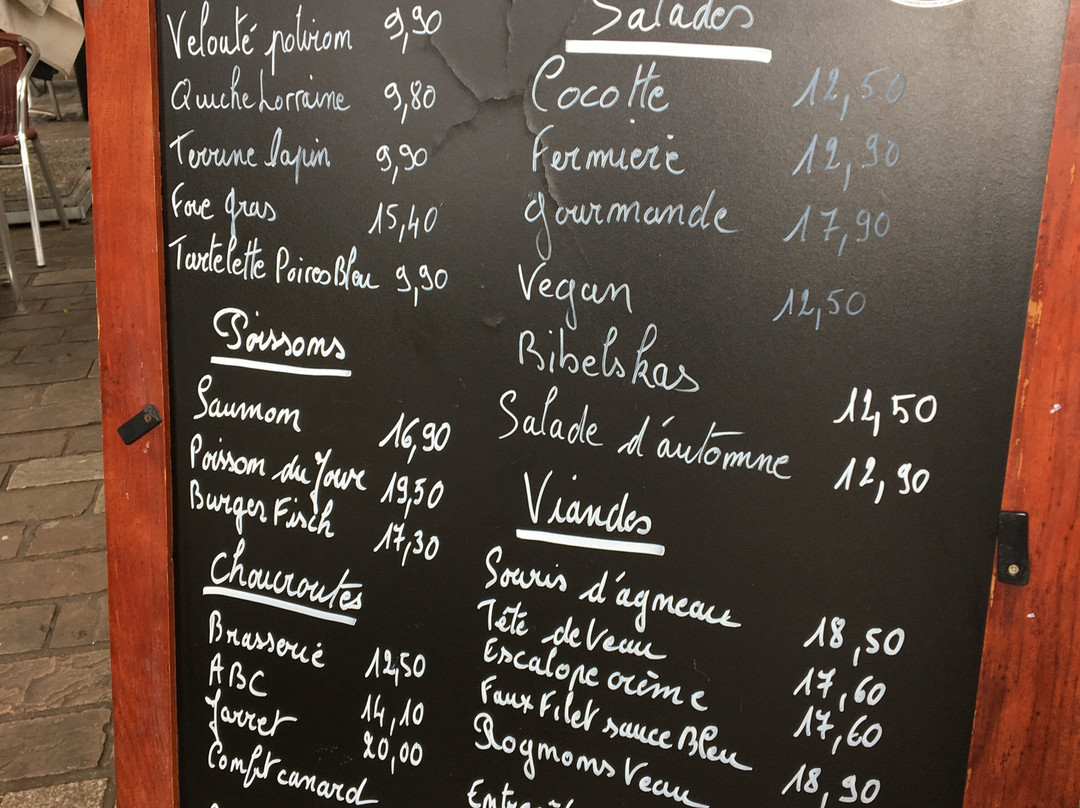 Velouté potiron 9,90
Quiche Lorraine 9,80
Terrine lapin 9,90
Foie gras 15,40
Tartelette Poires Bleu 9,90
Poissons
Saumon 16,90
Poisson du Jour 19,50
Burger Fisch 17,30
Choucroutes
Brasserie 12,50
ABC 14,10
Jarret 20,00
Confit canard
Salades
Cocotte 12,50
Fermière 12,90
gourmande 17,90
Vegan 12,50
Bibelskas 12,50
Salade d'automne 12,90
Viandes
Souris d'agneau 18,50
Tête de Veau 17,60
Escalope crème 17,60
Faux Filet sauce Bleu 18,90
Rognons Veau